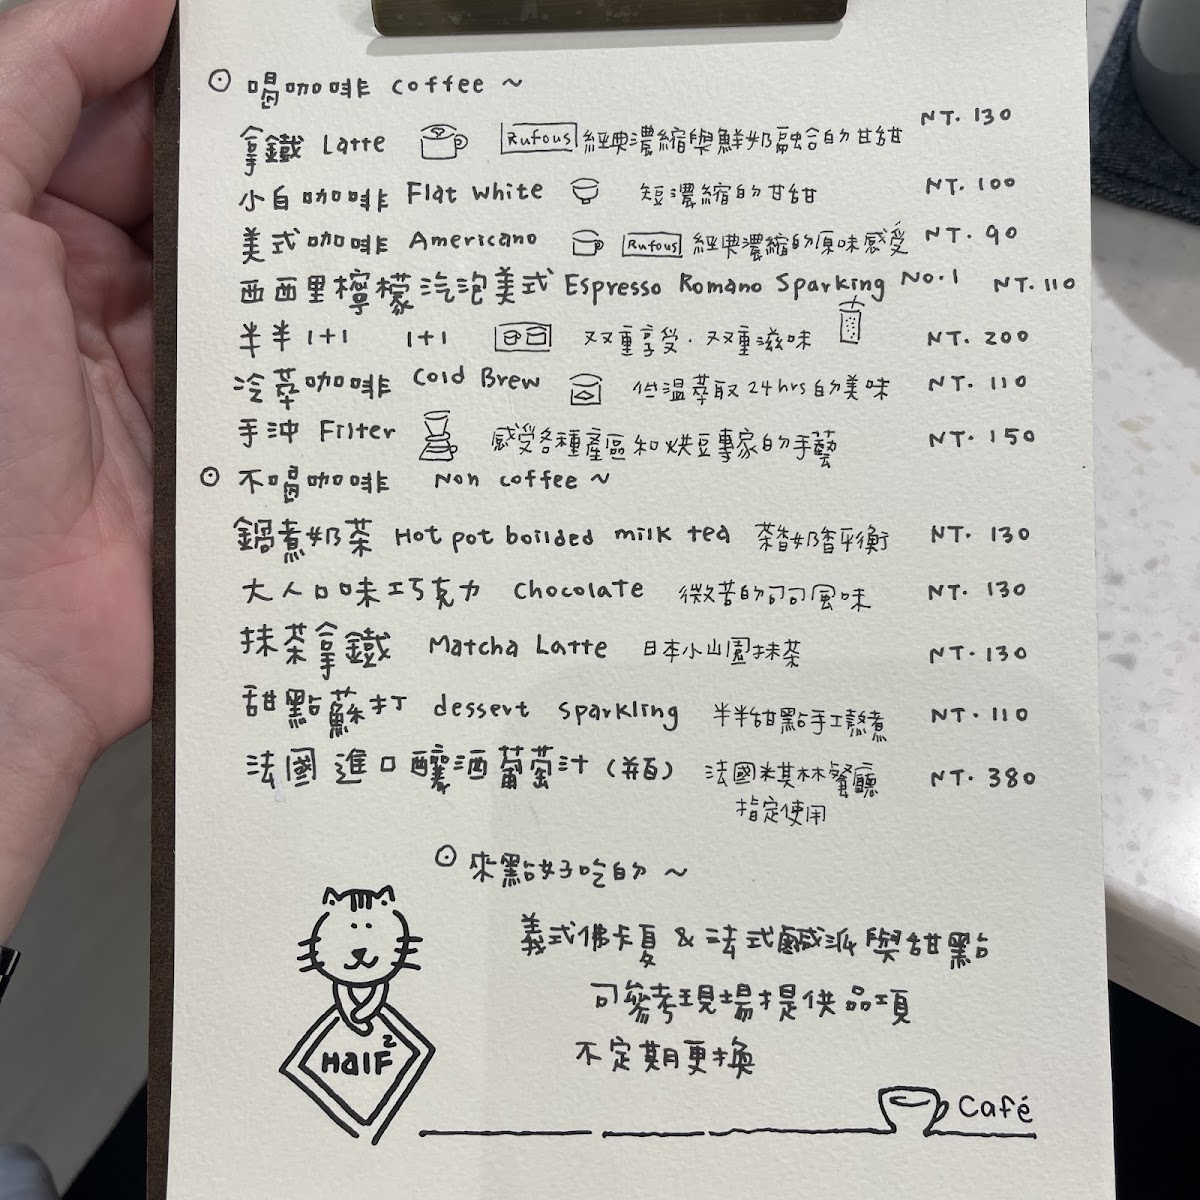 喝咖啡 coffee ~
拿鐵 Latte Rufous 經典濃縮與鮮奶融合的甘甜 NT. 130
小白咖啡 Flat White 短濃縮的甘甜 NT. 100
美式咖啡 Americano Rufous 經典濃縮的原味感受 NT. 90
西西里檸檬汽泡美式 Espresso Romano Sparking No.1 NT. 110
半半 1+1 1+1 双重享受.双重滋味 NT. 200
冷萃咖啡 Cold Brew 低溫萃取 24hrs 的美味 NT. 110
手沖 Filter 感受各種產區和烘豆專家的手藝 NT. 150
不喝咖啡 Non coffee ~
鍋煮奶茶 Hot pot boilded milk tea 茶香奶香平衡 NT. 130
大人口味巧克力 chocolate 微苦的可可風味 NT. 130
抹茶拿鐵 Matcha Latte 日本小山園抹茶 NT. 130
甜點蘇打 dessert sparkling 半半甜點手工熬煮 NT. 110
法國進口釀酒葡萄汁 (瓶) 法國米其林餐廳 NT. 380
指定使用
來點好吃的 ~
義式佛卡夏 & 法式鹹派與甜點
可參考現場提供品項
不定期更換
Half²
Café